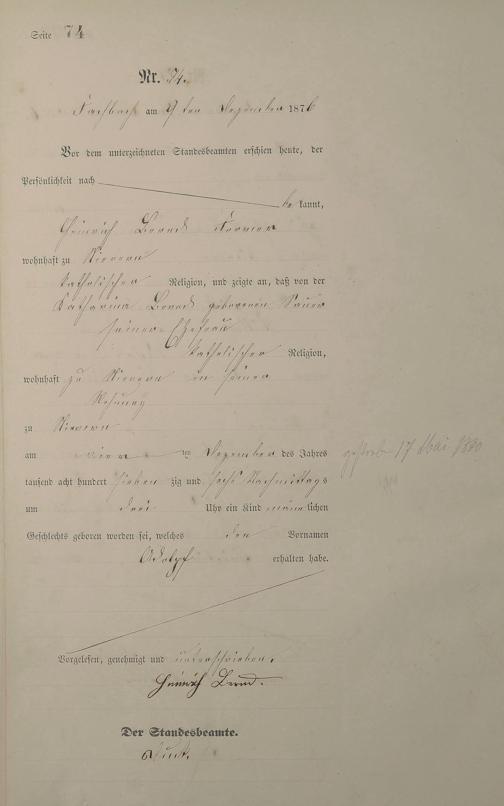 Seite 74
Nr. 74.
Fachbach am 9ten Dezember 1876
Vor dem unterzeichneten Standesbeamten erschien heute, der
Persönlichkeit nach
be kannt,
Heinrich Bernd
wohnhaft zu Nievern
katholischer Religion, und zeigte an, daß von der
Katharina Bernd geborenen Sauer
seiner Ehefrau
katholischer Religion,
wohnhaft zu Nievern in seiner
Wohnung
zu Nievern
am Dezember des Jahres
tausend acht hundert sieben zig und sechs Nachmittags
um drei Uhr ein Kind männlichen
Geschlechts geboren worden sei, welches den Vornamen
Adolf erhalten habe.
gestorb. 17 Mai 1880
Vorgelesen, genehmigt und unterschrieben.
Heinrich Bernd.
Der Standesbeamte.